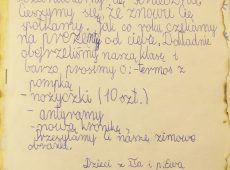 cieszymy się, że znowu Cię
spotkamy. Jak co roku czekamy
na prezenty od ciebie. Dokładnie
obejrzeliśmy naszą klasę i
barzo prosimy o: -termos z
pompką
- nożyczki (10 szt.)
- antyramy
- nową kronikę,
Przesyłamy Ci nasze zimowe
obrazki.
Dzieci z IIa i p. Ewa